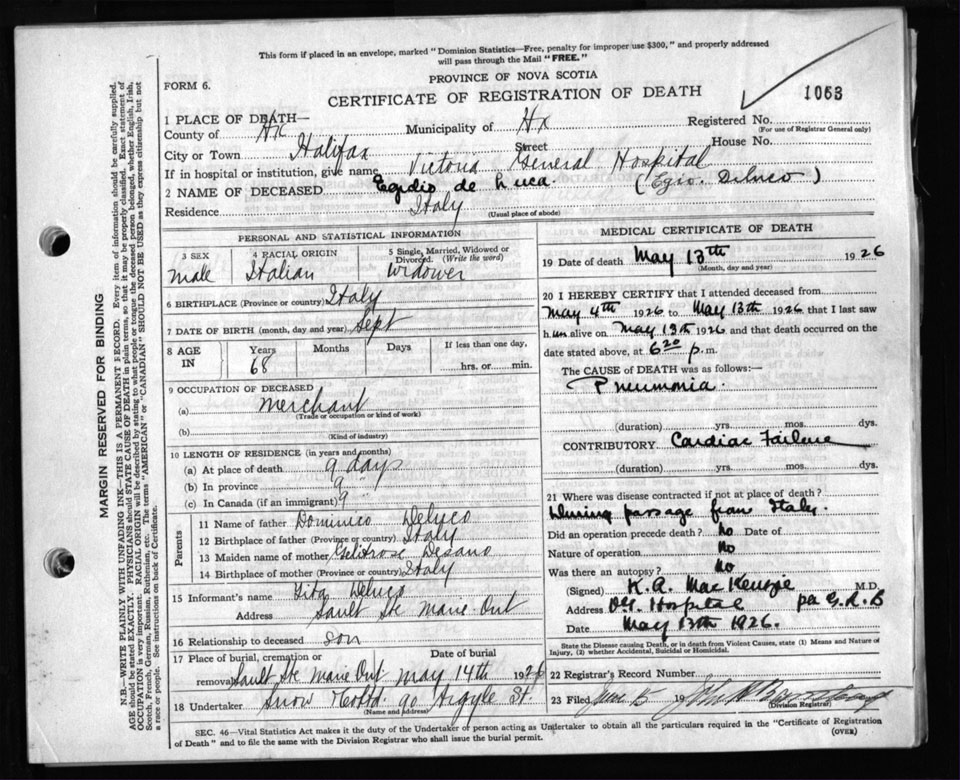 This form if placed in an envelope, marked "Dominion Statistics—Free, penalty for improper use $300," and properly addressed
will pass through the Mail "FREE."
PROVINCE OF NOVA SCOTIA
FORM 6.
CERTIFICATE OF REGISTRATION OF DEATH
1063
1 PLACE OF DEATH—
County of Hx Municipality of Hx Registered No.
(For use of Registrar General only)
City or Town Halifax Street House No.
If in hospital or institution, give name Victoria General Hospital
2 NAME OF DECEASED Egidio de Luca. (Egio. Deluco)
Residence Italy
(Usual place of abode)
PERSONAL AND STATISTICAL INFORMATION
3 SEX
male
4 RACIAL ORIGIN
Italian
5 Single, Married, Widowed or
Divorced. (Write the word)
Widower
6 BIRTHPLACE (Province or country) Italy
7 DATE OF BIRTH (month, day and year) Sept
8 AGE IN Years Months Days If less than one day,
68 hrs. or min.
9 OCCUPATION OF DECEASED
(a) merchant
(Trade or occupation or kind of work)
(b)
(Kind of industry)
10 LENGTH OF RESIDENCE (in years and months)
(a) At place of death 9 days
(b) In province 9 "
(c) In Canada (if an immigrant) 9
Parents
11 Name of father Dominico Deluco
12 Birthplace of father (Province or country) Italy
13 Maiden name of mother Desano
14 Birthplace of mother (Province or country) Italy
15 Informant's name Tito Deluco
Address Sault Ste Marie Ont
16 Relationship to deceased son
17 Place of burial, cremation or Date of burial
removal Sault Ste Marie Ont May 14th 1926
18 Undertaker Snow 90 Argyle St.
(Name and address)
MEDICAL CERTIFICATE OF DEATH
19 Date of death May 13th 1926
(Month, day and year)
20 I HEREBY CERTIFY that I attended deceased from
May 4th 1926 to May 13th 1926 that I last saw
him alive on May 13th 1926 and that death occurred on the
date stated above, at 6 20 p. m.
The CAUSE of DEATH was as follows:—
Pneumonia.
(duration) yrs. mos. dys.
CONTRIBUTORY. Cardiac Failure
(duration) yrs. mos. dys.
21 Where was disease contracted if not at place of death?
During passage from Italy.
Did an operation precede death? No Date of
Nature of operation No
Was there an autopsy? No
(Signed) K. A. MacKenzie M.D.
Address V.G. Hospital per G.R.B
Date May 13th 1926.
State the Disease causing Death, or in death from Violent Causes, state (1) Means and Nature of
Injury, (2) whether Accidental, Suicidal or Homicidal.
22 Registrar's Record Number
23 Filed June 5 19
(Division Registrar)
SEC. 46—Vital Statistics Act makes it the duty of the Undertaker or person acting as Undertaker to obtain all the particulars required in the "Certificate of Registration
of Death" and to file the same with the Division Registrar who shall issue the burial permit.
(OVER)
MARGIN RESERVED FOR BINDING
N.B.—WRITE PLAINLY WITH UNFADING INK—THIS IS A PERMANENT RECORD. Every item of information should be carefully supplied.
AGE should be stated EXACTLY. PHYSICIANS should STATE CAUSE OF DEATH in plain terms, so that it may be properly classified. Exact statement of
OCCUPATION is very important. RACIAL ORIGIN will be described by stating to what people or tongue the deceased person belonged, whether English, Irish,
Scotch, French, German, Russian, Ruthenian, etc. The terms "AMERICAN" or "CANADIAN" SHOULD NOT BE USED as they express citizenship but not
a race or people. See instructions on back of Certificate.